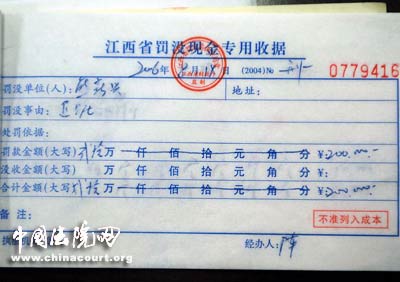 江西省罚没现金专用收据
2006年 月 日 (2004)No 0779416
罚没单位(人): 地址:
罚没事由:
处罚依据:
罚款金额(大写) 拾万 仟 佰 拾 元 角 分 ¥200.000.-
没收金额(大写) 万 仟 佰 拾 元 角 分 ¥:
合计金额(大写) 拾万 仟 佰 拾 元 角 分 ¥200.000.-
备注: 不准列入成本
经办人:
中国法院网
www.chinacourt.org